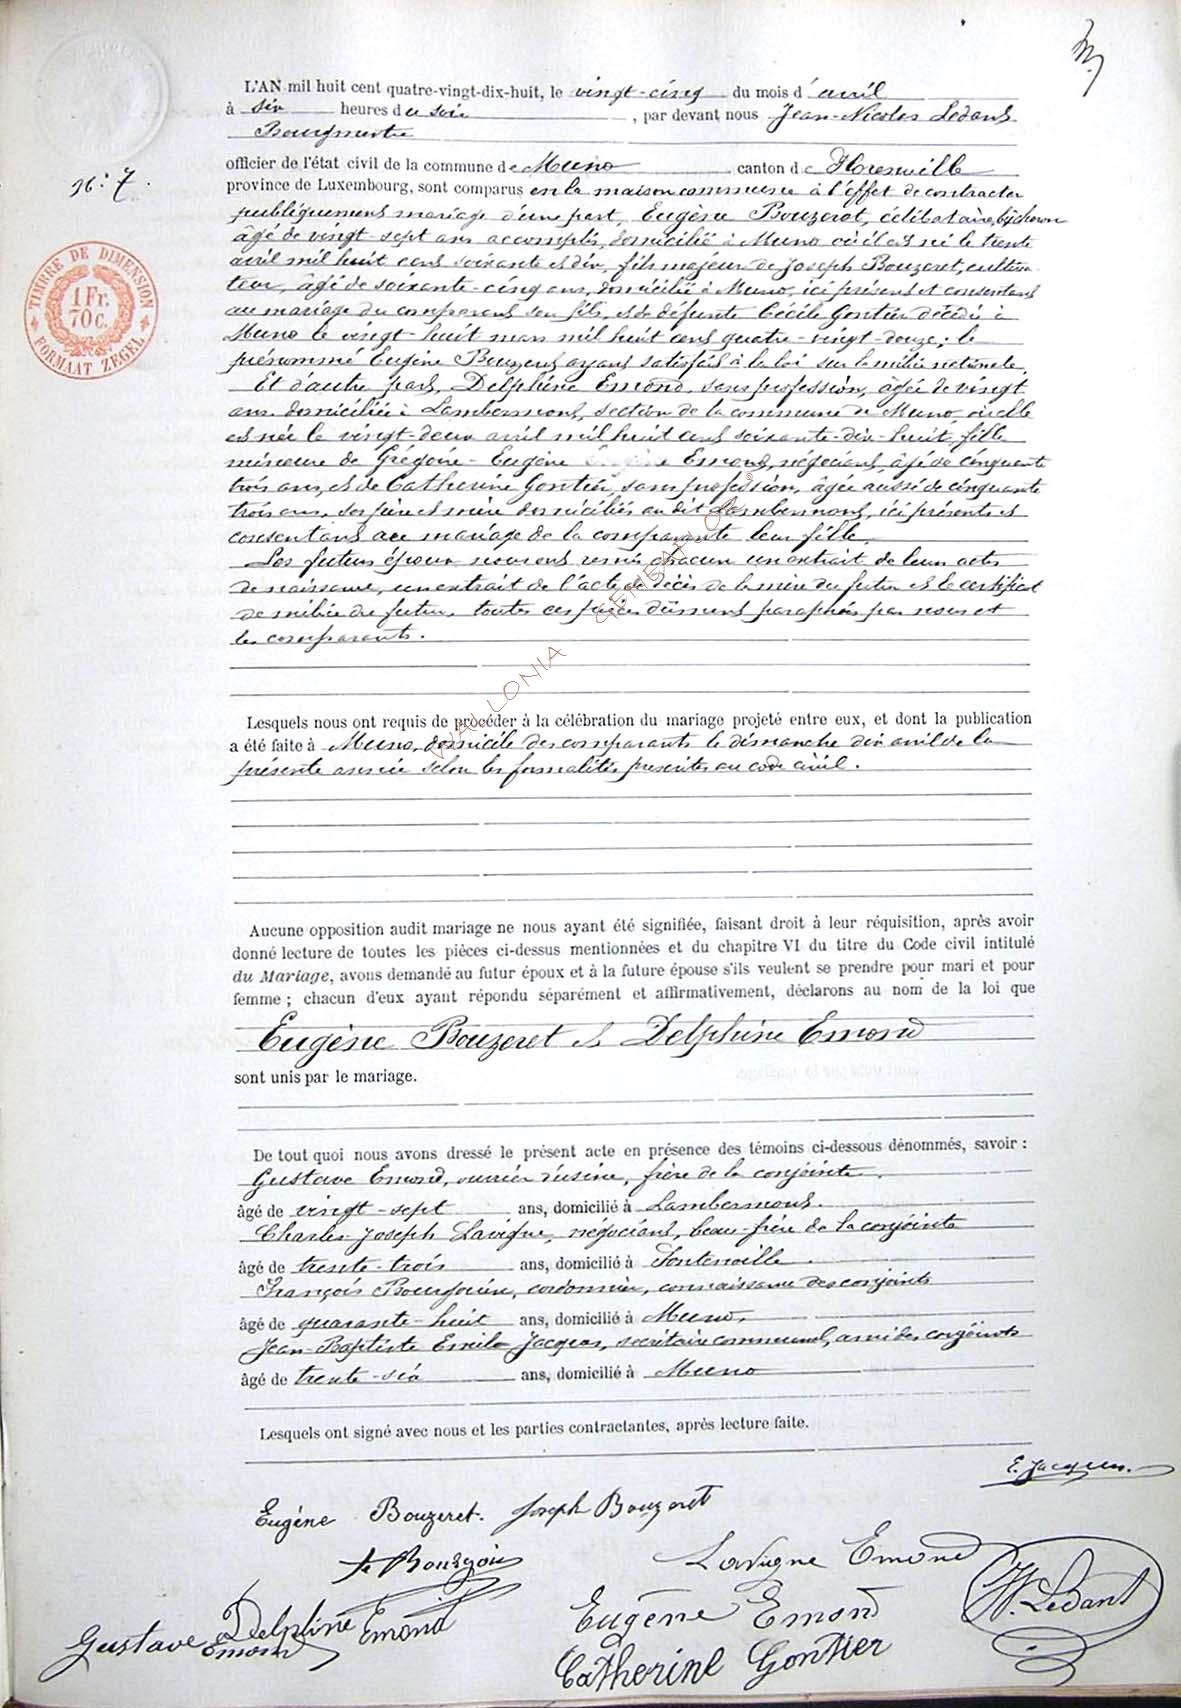 L'AN mil huit cent quatre-vingt-dix-huit, le vingt-cinq du mois d'avril
à six heures du soir, par devant nous Jean-Nicolas Ledant
Bourgmestre
officier de l'état civil de la commune de Muno canton de Florenville
N.° 7.
province de Luxembourg, sont comparus en la maison commune à l'effet de contracter
publiquement mariage d'une part, Eugène Bouzeret, célibataire,
âgé de vingt-sept ans accomplis, domicilié à Muno où il est né le trente
avril mil huit cent soixante et dix, fils majeur de Joseph Bouzeret, cultiva-
teur, âgé de soixante-cinq ans, domicilié à Muno, ici présent et consentant
au mariage du comparant son fils, et de défunte Cécile Gontier décédée à
Muno le vingt-huit mars mil huit cent quatre-vingt-douze; le
prénommé Eugène Bouzeret ayant satisfait à la loi sur la milice nationale.
Et d'autre part, Delphine Emond, sans profession, âgée de vingt
ans domiciliée à Lambermont, section de la commune de Muno, où elle
est née le vingt-deux avril mil huit cent soixante-dix-huit, fille
mineure de Grégoire-Eugène Emond, négociant, âgé de cinquante
trois ans, et de Catherine Gontier, sans profession, âgée aussi de cinquante
trois ans, ses père et mère domiciliés au dit Lambermont, ici présents et
consentant au mariage de la comparante leur fille.
Les futurs époux nous ont remis chacun un extrait de leur acte
de naissance, un extrait de l'acte de décès de la mère du futur et le certificat
de milice du futur, toutes ces pièces dûment paraphées par nous et
les comparants.
TIMBRE DE DIMENSION
1 Fr.
70 c.
FORMAAT ZEGEL
WALLONIA
Lesquels nous ont requis de procéder à la célébration du mariage projeté entre eux, et dont la publication
a été faite à Muno, domicile des comparants le dimanche dix avril de la
présente année selon les formalités prescrites au code civil.
Aucune opposition audit mariage ne nous ayant été signifiée, faisant droit à leur réquisition, après avoir
donné lecture de toutes les pièces ci-dessus mentionnées et du chapitre VI du titre du Code civil intitulé
du Mariage, avons demandé au futur époux et à la future épouse s'ils veulent se prendre pour mari et pour
femme ; chacun d'eux ayant répondu séparément et affirmativement, déclarons au nom de la loi que
Eugène Bouzeret et Delphine Emond
sont unis par le mariage.
De tout quoi nous avons dressé le présent acte en présence des témoins ci-dessous dénommés, savoir :
Gustave Emond, ouvrier d'usine, frère de la conjointe.
âgé de vingt-sept ans, domicilié à Lambermont.
Charles-Joseph Lavigne, négociant, beau-frère de la conjointe
âgé de trente-trois ans, domicilié à Fontenoille.
François Bourguin, cordonnier, connaissance des conjoints
âgé de quarante-huit ans, domicilié à Muno.
Jean-Baptiste Emile Jacques, secrétaire communal, ami des conjoints
âgé de trente-six ans, domicilié à Muno
Lesquels ont signé avec nous et les parties contractantes, après lecture faite.
E. Jacques.
Eugène Bouzeret. Joseph Bouzeret
Lavigne Emond
N. Ledant
Delphine Emond
Eugène Emond
Gustave Emond
Catherine Gontier